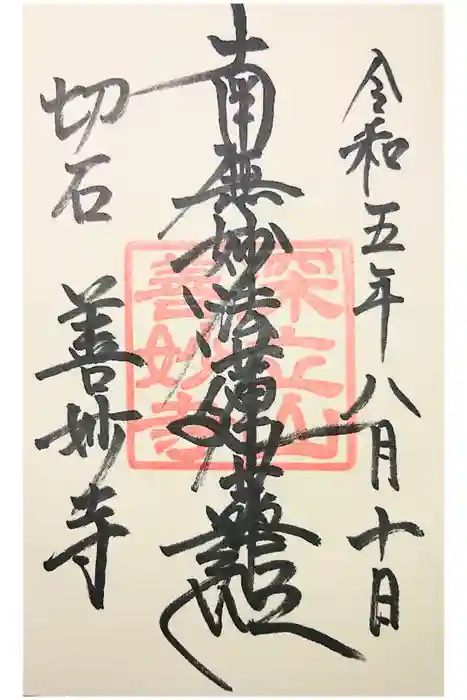 令和五年八月十日
南無妙法蓮華経
切石 善妙寺
深立山
善妙寺